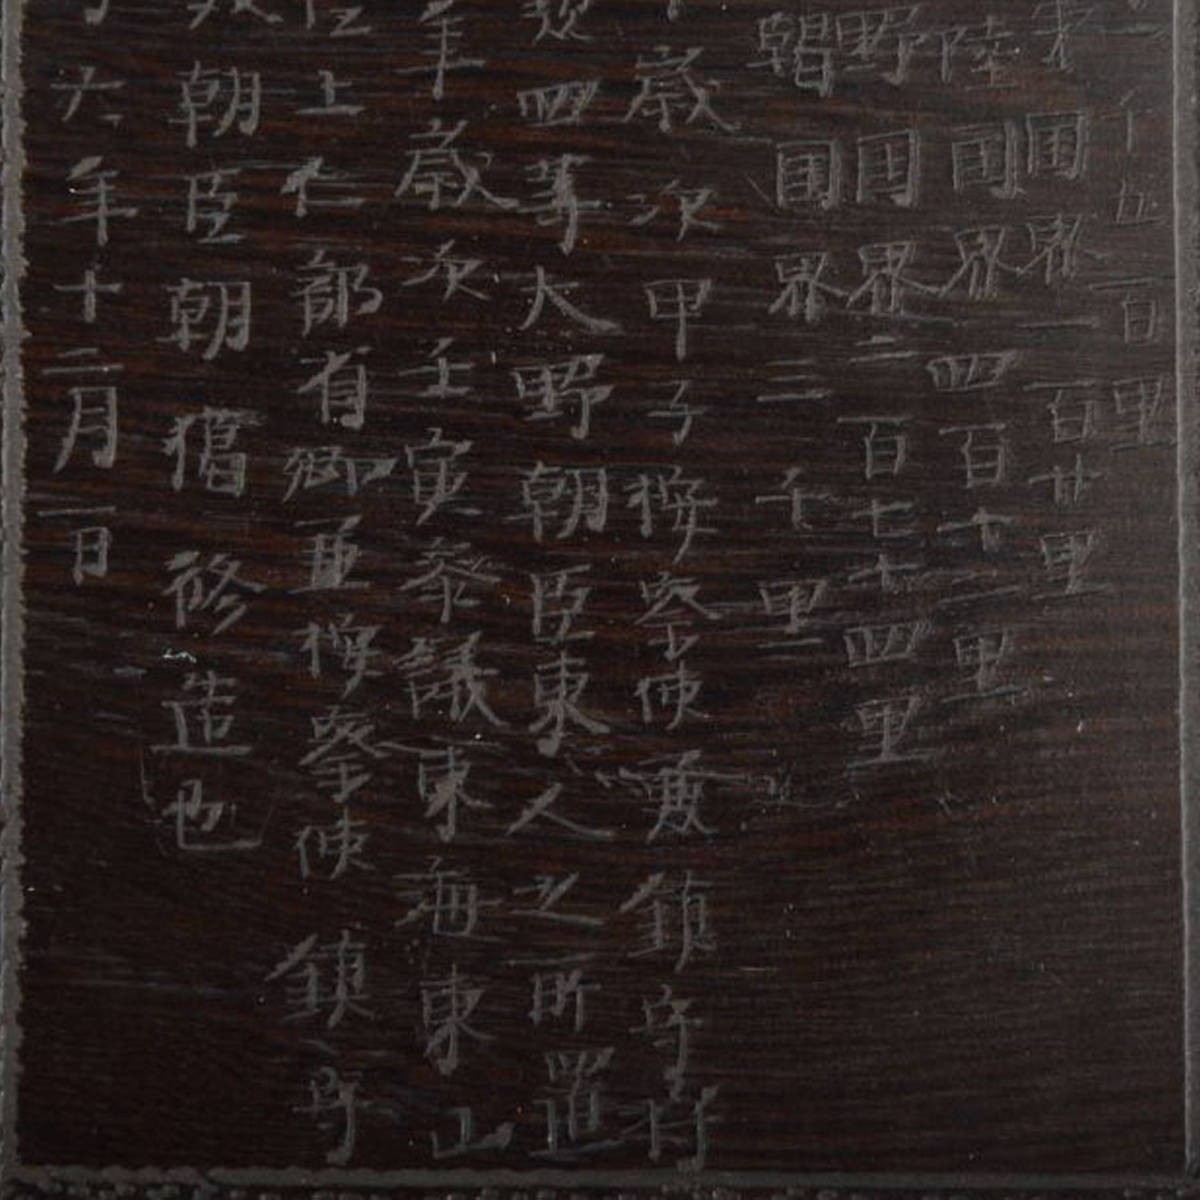 一千五百里
夷國界一百廿里
陸國界四百十二里
野國界二百七十四里
國界三千里
歲次甲子按察使兼鎮守將
勳四等大野朝臣東人之所置
年歲次壬寅參議東海東山
位上仁部省卿兼按察使鎮守
美朝臣朝獦修造也
六年十二月一日